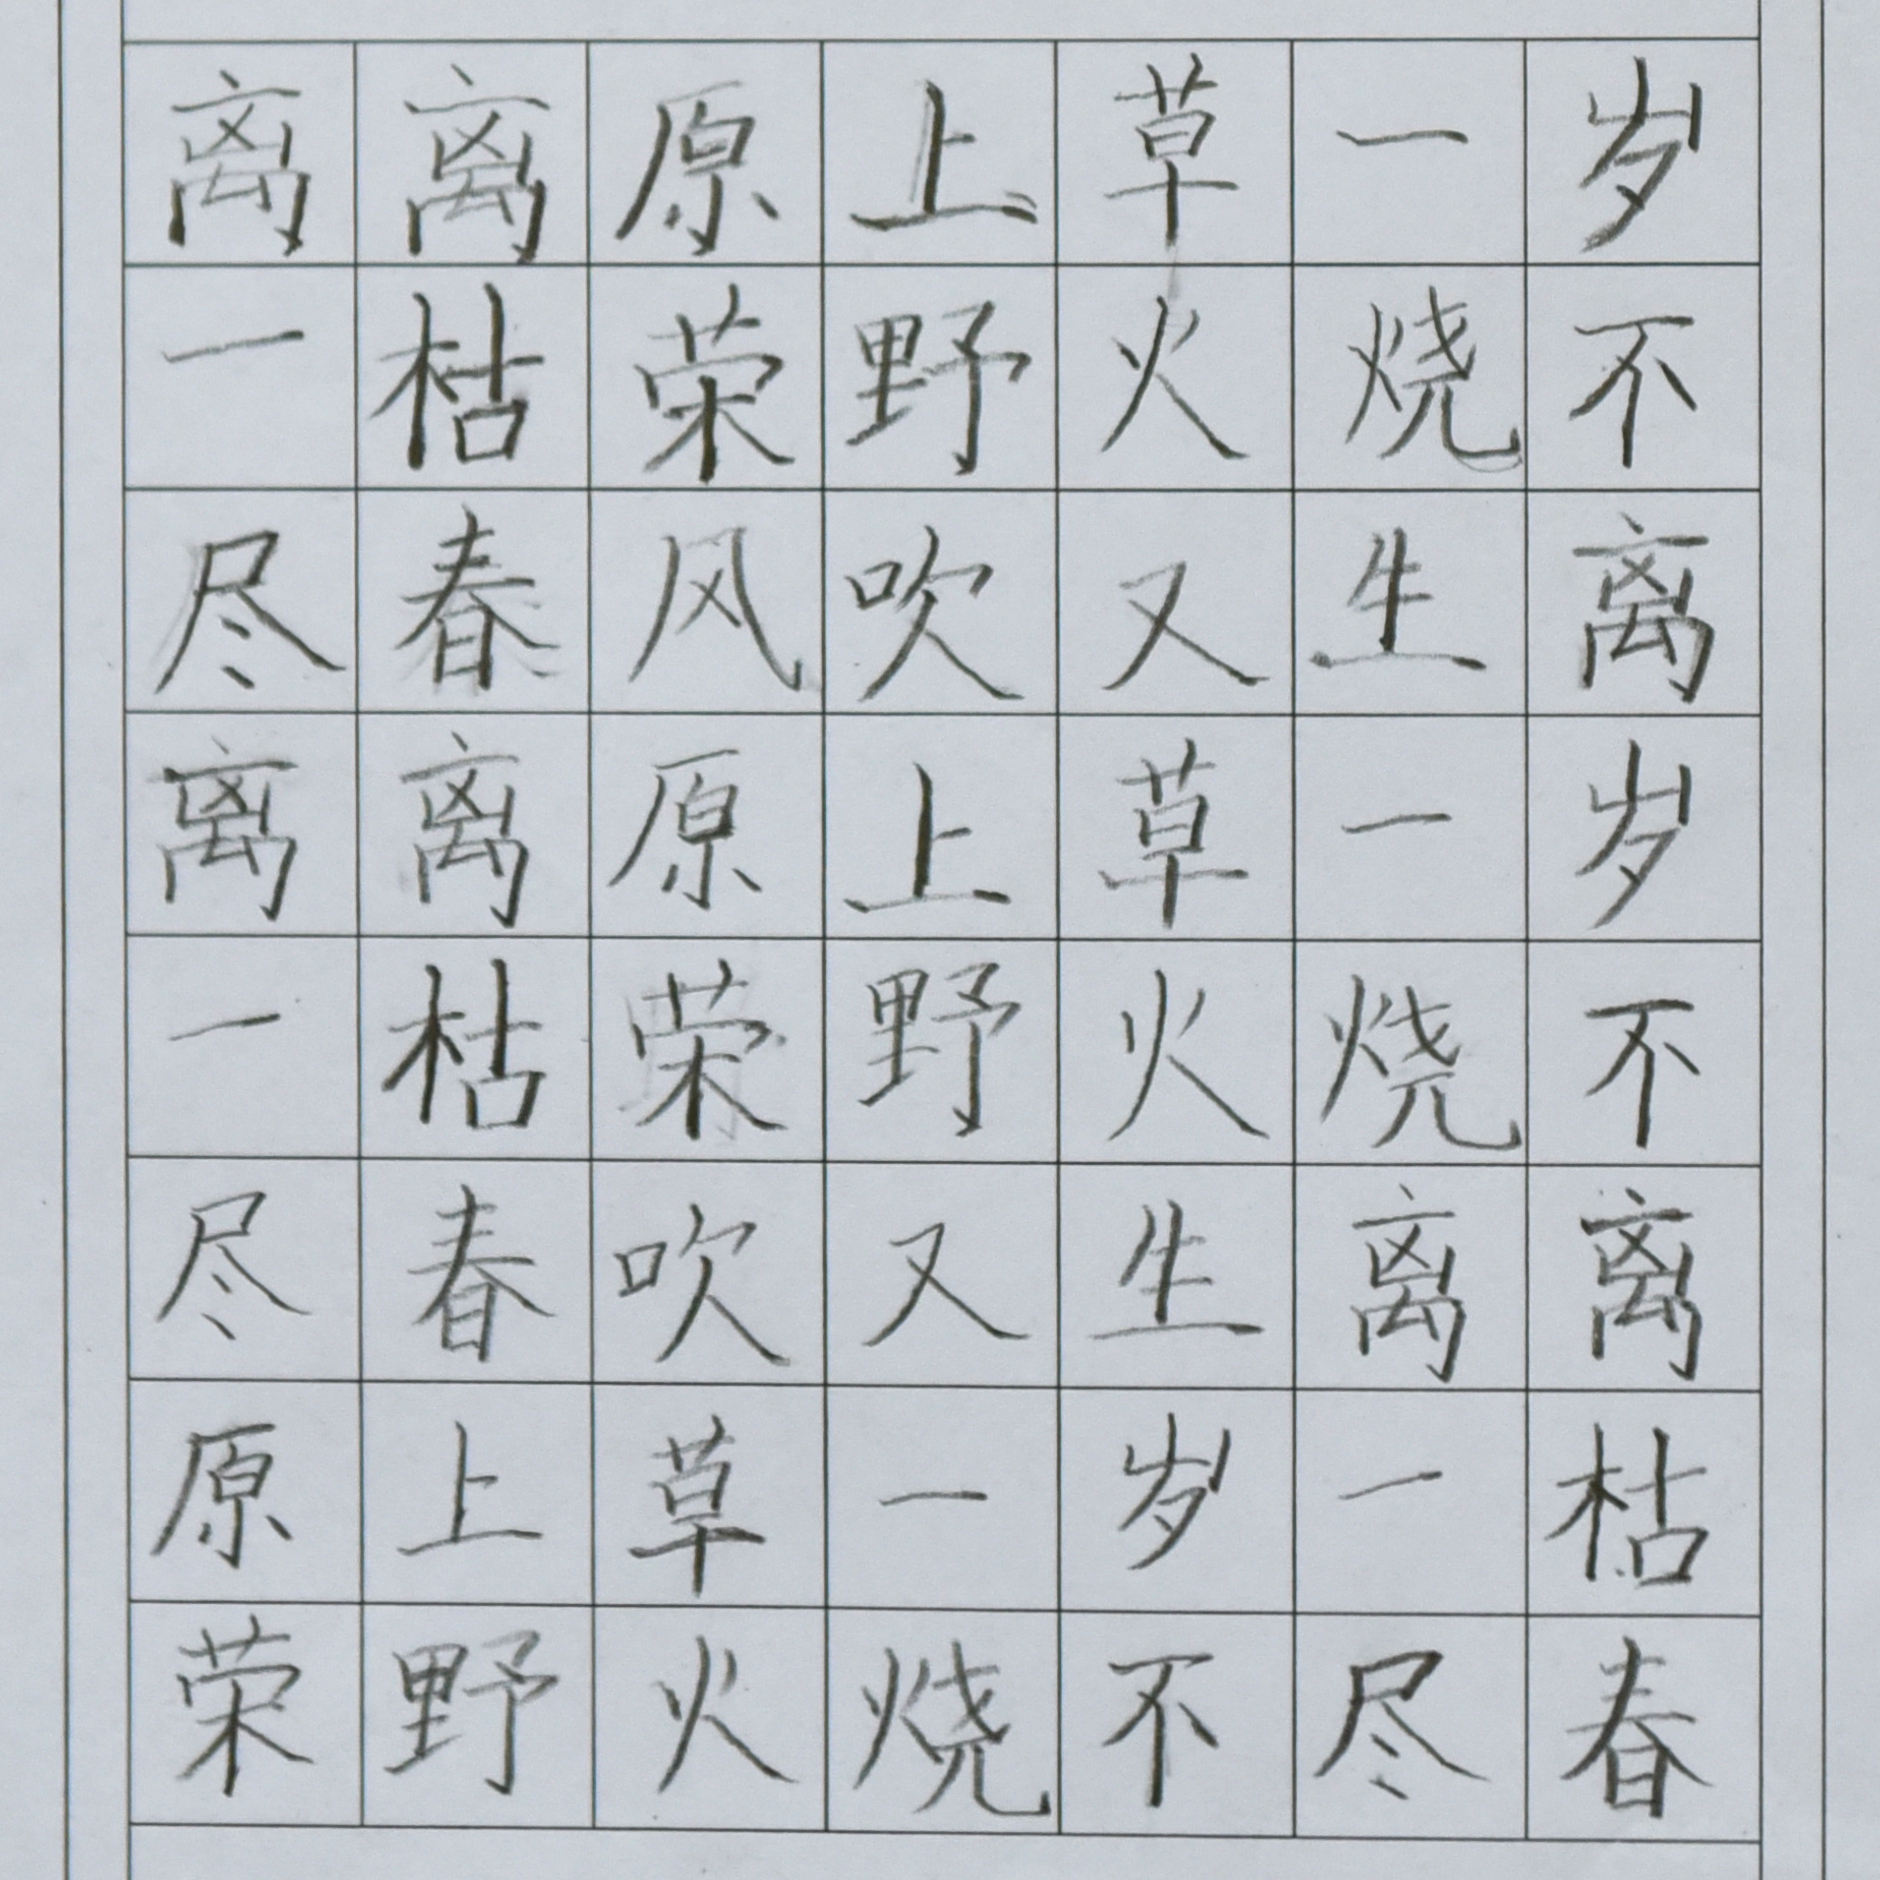 离离原上草一岁
一枯荣野火烧不
尽春风吹又生离
离离原上草一岁
一枯荣野火烧不
尽春吹又生离离
原上草一岁一枯
荣野火烧不尽春